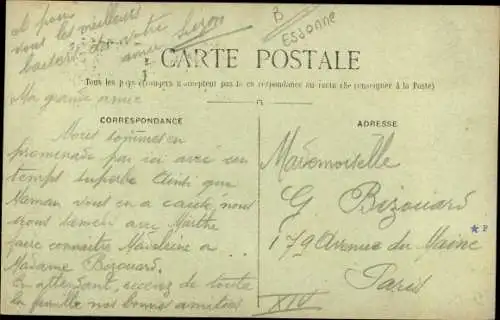 et pour
vous les meilleurs
baisers de votre
amie Suzon
B
Essonne
CARTE POSTALE
Tous les pays étrangers n'acceptent pas la correspondance au recto (Se renseigner à la Poste)
CORRESPONDANCE
ADRESSE
Ma grande amie
Nous sommes en
promenade par ici avec un
temps superbe Ainsi que
Maman vous en a causé, nous
irons demain avec Marthe
faire connaître Madeleine à
Madame Bizouard.
En attendant, recevez de toute
la famille nos bonnes amitiés
Mademoiselle
G Bizouard
179 Avenue du Maine
Paris
XIV